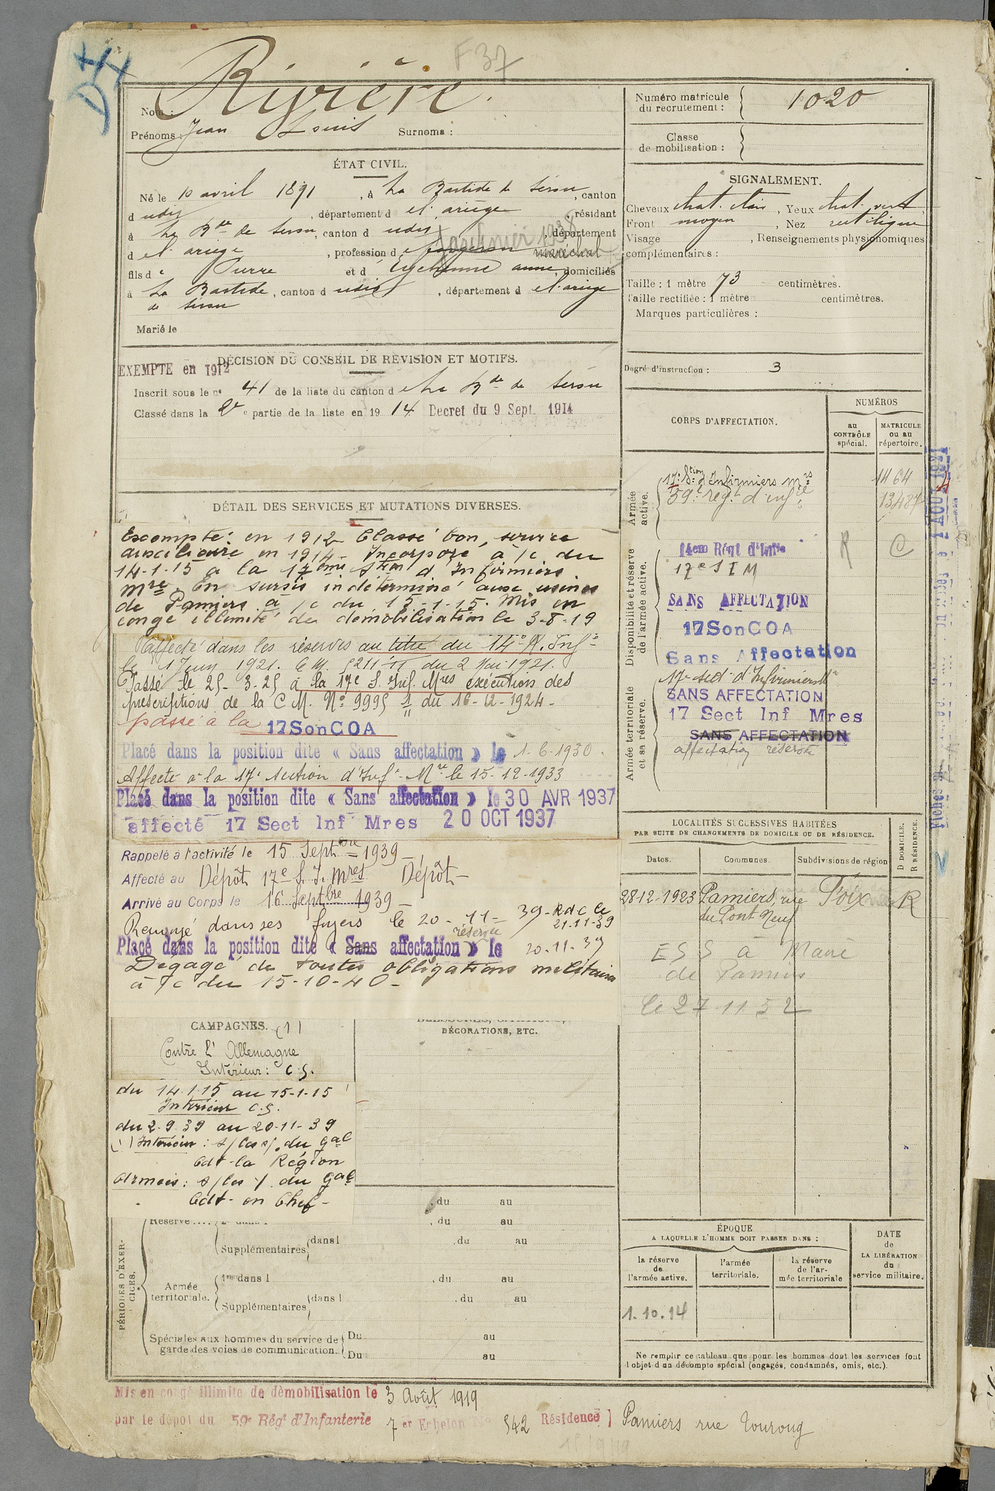 F 37
Nom : Rivière.
Prénoms : Jean Louis Surnoms :
ÉTAT CIVIL.
Né le 10 avril 1891, à La Bastide de Sérou, canton
d udit, département d e l'ariège, résidant
à La Bde de Serou, canton d udit, département
d el ariège, profession d e forgeron maréchal
fils d e Pierre et d , domiciliés
à La Bastide de Serou, canton d udit, département d e l'ariège
Marié le
DÉCISION DU CONSEIL DE RÉVISION ET MOTIFS.
EXEMPTÉ en 1912
Inscrit sous le n° 41 de la liste du canton d e La Bde de Serou
Classé dans la 2e partie de la liste en 1914 Decret du 9 Sept. 1914
DÉTAIL DES SERVICES ET MUTATIONS DIVERSES.
Exempté en 1912 Classé bon, service
auxiliaire en 1914 - Incorporé à /c du
14-1-15 à la 17ème Stion d'Infirmiers
Mres En sursis indéterminé aux usines
de Pamiers à /c du 15-1-15. Mis en
congé illimité de démobilisation le 3-8-19
Affecté dans les réserves au titre du 14e R. Infie
le 1 Juin 1921. C.M. 5211 du 2 Mai 1921.
Passé le 25-3-25 à la 17e S. Inf. Mres exécution des
prescriptions de la C M. No 9995 du 16-12-1924-
passé à la 17SonCOA
Placé dans la position dite « Sans affectation » le 1.6.1930.
Affecté à la 17e section d'Inf. Mre le 15-12-1933
Placé dans la position dite « Sans affectation » le 30 AVR 1937
affecté 17 Sect Inf Mres 20 OCT 1937
Rappelé à l'activité le 15 Septbre 1939
Affecté au Dépôt 17e S. I. Mres Dépôt-
Arrivé au Corps le 16 Septbre 1939-
Renvoyé dans ses foyers le 20-11-39-
21.11.39
réserve
Placé dans la position dite « Sans affectation » le 20-11-39
Dégagé de toutes obligations militaires
à /c du 15-10-40-
CAMPAGNES. (1)
Contre l'Allemagne
Intérieur : C.S.
du 14.1.15 au 15-1-15
Intérieur C.S.
du 2.9.39 au 20-11-39
(1) Intérieur : du gal
Cdt la Région
Armées : du gal
Cdt en Chef-
DÉCORATIONS, ETC.
, du au
, du au
PÉRIODES D'EXERCICES.
Réserve
Supplémentaires (dans l , du au
Armée territoriale.
1re dans l , du au
Supplémentaires (dans l , du au
Spéciales aux hommes du service de garde des voies de communication.
Du au
Du au
Mis en congé illimité de démobilisation le 3 Août 1919
par le dépôt du 59e Régt d'Infanterie 7 e Echelon No 542 Résidence Pamiers rue
Numéro matricule du recrutement : 1020
Classe de mobilisation :
SIGNALEMENT.
Cheveux chat. clair, Yeux chat. vert
Front moyen, Nez rectiligne
Visage , Renseignements physionomiques
complémentaires :
Taille : 1 mètre 73 centimètres.
Taille rectifiée : 1 mètre centimètres.
Marques particulières :
Degré d'instruction : 3
CORPS D'AFFECTATION.
NUMÉROS
AU CONTRÔLE spécial.
MATRICULE OU AU répertoire.
Armée active.
17e Stion d'Infirmiers mres 1464
59e régt d'infie
Disponibilité et réserve de l'armée active.
14eme Régt d'Infie R C
17e S I M
SANS AFFECTATION
17SonCOA
Sans Affectation
Armée territoriale et sa réserve.
17e sect. d'Infirmiers
SANS AFFECTATION
17 Sect Inf Mres
SANS AFFECTATION
affectation réserve
LOCALITÉS SUCCESSIVES HABITÉES
PAR SUITE DE CHANGEMENTS DE DOMICILE OU DE RÉSIDENCE.
Dates. Communes. Subdivisions de région D DOMICILE. R RÉSIDENCE.
28-12-1923 Pamiers, rue du Pont Neuf Foix R
le 27 11 52
ÉPOQUE
A LAQUELLE L'HOMME DOIT PASSER DANS :
la réserve de l'armée active.
l'armée territoriale.
la réserve de l'armée territoriale
DATE de LA LIBÉRATION du service militaire.
1.10.14
Ne remplir ce tableau que pour les hommes dont les services font
l'objet d'un décompte spécial (engagés, condamnés, omis, etc.).